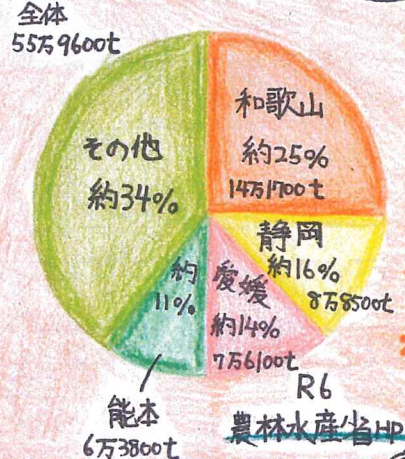 全体
55万9600t
和歌山
約25%
14万1700t
静岡
約16%
8万8500t
愛媛
約14%
7万6100t
約
11%
熊本
6万3800t
その他
約34%
R6
農林水産省HP